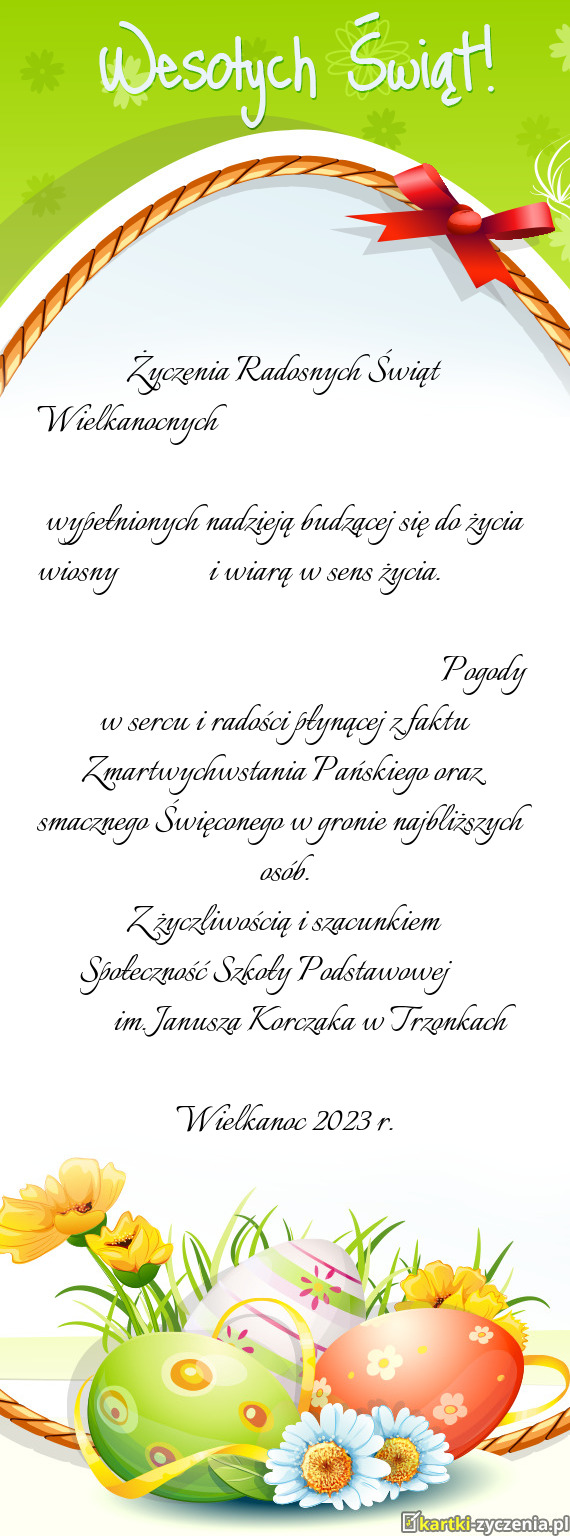 Wesołych Świąt!
Życzenia Radosnych Świąt
Wielkanocnych
wypełnionych nadzieją budzącej się do życia
wiosny i wiarą w sens życia.
Pogody
w sercu i radości płynącej z faktu
Zmartwychwstania Pańskiego oraz
smacznego Święconego w gronie najbliższych
osób.
Z życzliwością i szacunkiem
Społeczność Szkoły Podstawowej
im. Janusza Korczaka w Trzonkach
Wielkanoc 2023 r.
kartki-zyczenia.pl